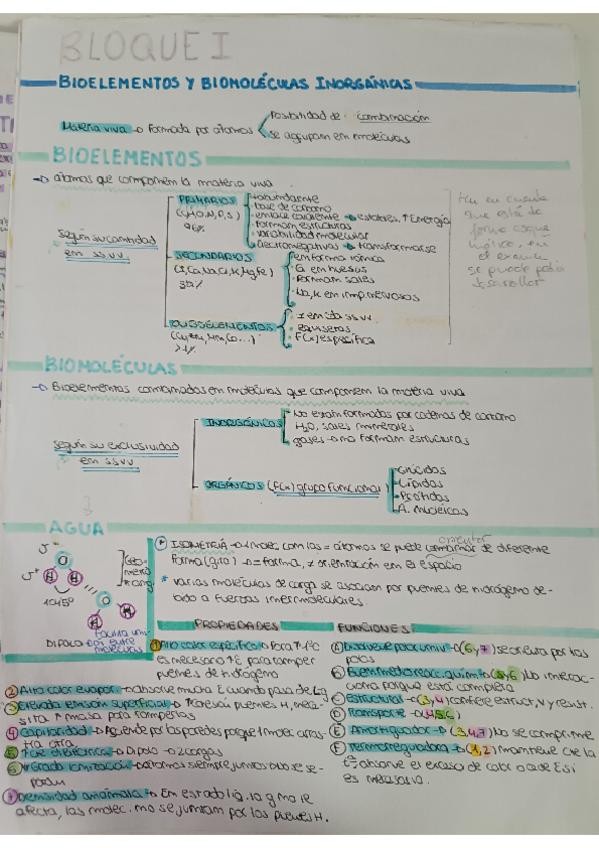 BLOQUE I
BIOELEMENTOS Y BIOMOLÉCULAS INORGÁNICAS
Materia viva → Formada por átomos
Posibilidad de combinación
se agrupan en moléculas
BIOELEMENTOS
→ átomos que componen la materia viva
Según su cantidad en ss.vv.
PRIMARIOS
(C,H,O,N,P,S)
96%
base de carbono
enlace covalente → estables, ↑Energía
Forman estructuras
variabilidad molecular
Electronegativos → transformarse
SECUNDARIOS
3%
en forma iónica
Ca en huesos
Forman sales
Na, K en imp. nerviosos
OLIGOELEMENTOS
F(x) específica
Ten en cuenta
que está de
forma esque
mática, en
el examen
se puede pedir
desarrollar
BIOMOLÉCULAS
→ Bioelementos combinados en moléculas que componen la materia viva
Según su exclusividad en ss.vv.
INORGÁNICOS
No están formados por cadenas de carbono
H₂O, sales minerales
gases → no forman estructuras
ORGÁNICOS (F(x) grupo funcional)
Glúcidos
Lípidos
Prótidos
A. nucleicos
AGUA
104'5º
DIPOLO
* ISOMETRÍA → molec. con las = átomos se puede combinar de diferente
orientar
forma (giro) → = forma, ≠ orientación en el espacio
* varias moléculas de carga se asocian por puentes de hidrógeno de-
bido a fuerzas intermoleculares.
PROPIEDADES
① Alto calor específico → Para ↑1ºC
es necesario ↑E para romper
puentes de hidrógeno
② Alto calor evapor. → absorve mucha E cuando pasa de L-g
③ Elevada tensión superficial → Posesión puentes H, nece-
sita ↑masa para romperlas
④ Capilaridad → Asciende por las paredes porque 1 molec arras-
tra otra.
⑤ → Dipolo → 2 cargas
⑥ Grado ionización → átomos siempre juntos o no se se-
paran
⑦ Densidad anómala → En estado líq. la g no le
afecta, las molec. no se juntan por los puentes H.
FUNCIONES
Ⓐ Disolvente por univ. → (6,7) se orienta por los
polos
Ⓑ Buen medio reacc. quím. → (5,6) No interac-
ciona porque está completa
Ⓒ Estructural → (3,4) confiere estruct, v y resist.
Ⓓ Transporte → (4,5,6)
Ⓔ Amortiguador → (3,4,7) No se comprime
Ⓕ Termorreguladora → (1,2) mantiene cte la
tª, absorve el exceso de calor o cede E si
es necesario.